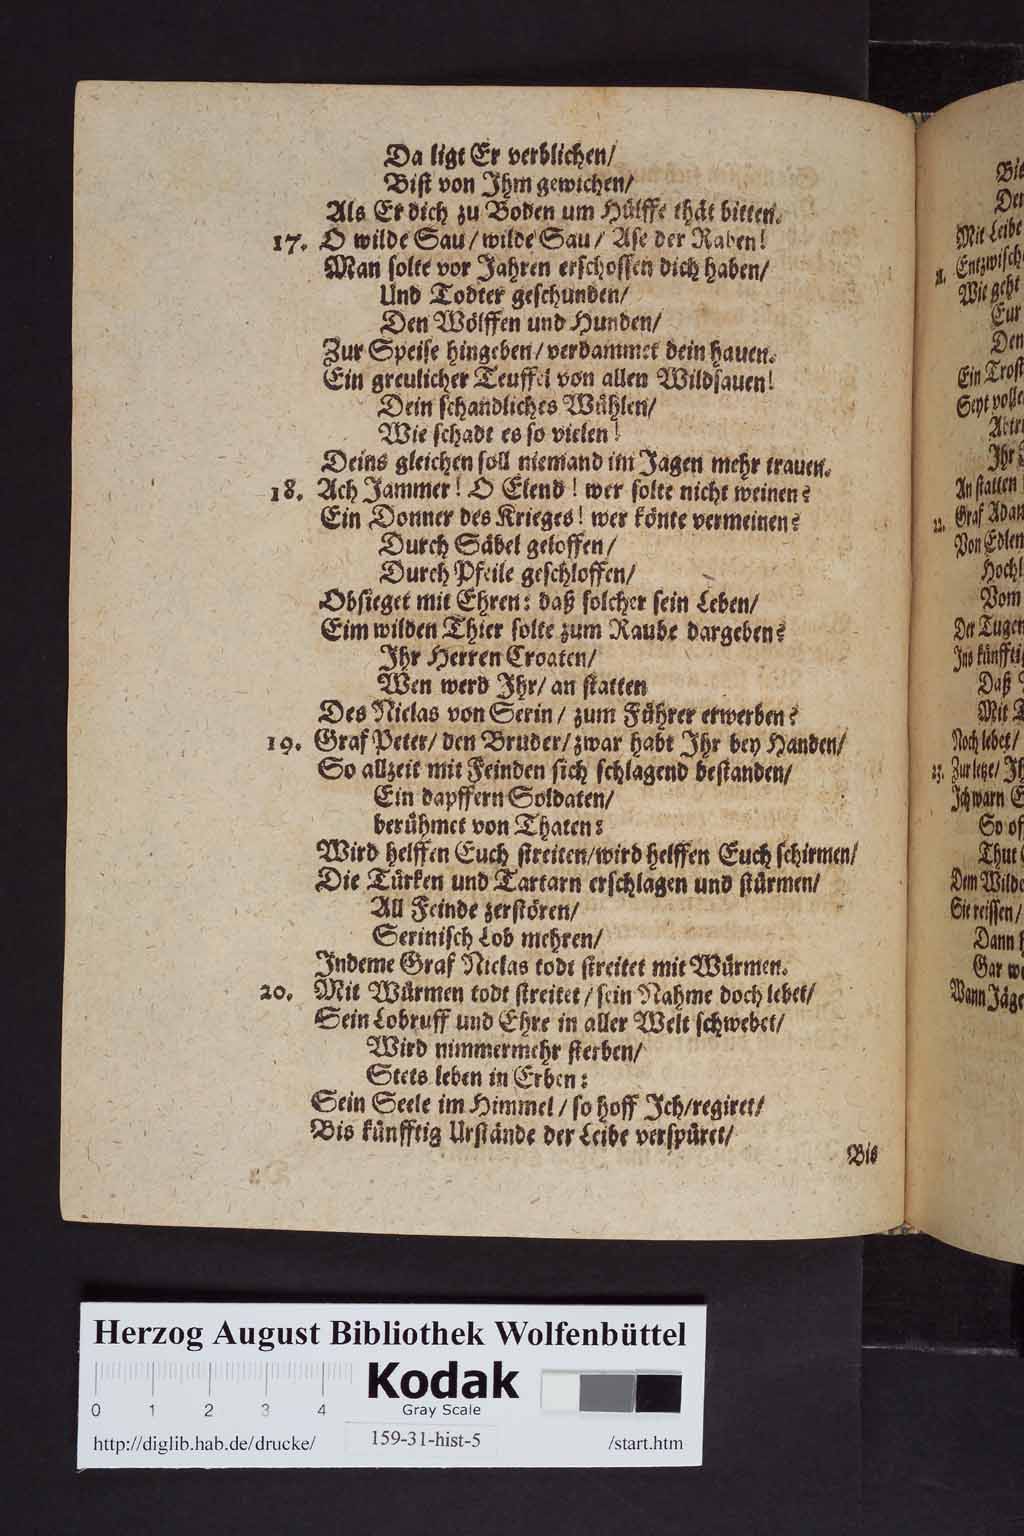 Da ligt Er verblichen/
Bist von Ihm gewichen/
Als Er dich zu Boden um Hülffe thät bitten.
17. O wilde Sau/ wilde Sau/ Ase der Raben!
Man solte vor Jahren erschossen dich haben/
Und Todter geschunden/
Den Wölffen und Hunden/
Zur Speise hingeben/ verdammet dein hauen.
Ein greulicher Teuffel von allen Wildsauen!
Dein schandliches Wühlen/
Wie schadt es so vielen!
Deins gleichen soll niemand im Jagen mehr trauen.
18. Ach Jammer! O Elend! wer solte nicht weinen?
Ein Donner des Krieges! wer könte vermeinen?
Durch Säbel geloffen/
Durch Pfeile geschloffen/
Obsieget mit Ehren: daß solcher sein Leben/
Eim wilden Thier solte zum Raube dargeben?
Ihr Herren Croaten/
Wen werd Ihr/ an statten
Des Niclas von Serin/ zum Führer erwerben?
19. Graf Peter/ den Bruder/ zwar habt Ihr bey Handen/
So allzeit mit Feinden sich schlagend bestanden/
Ein dapffern Soldaten/
berühmet von Thaten:
Wird helffen Euch streiten/ wird helffen Euch schirmen/
Die Türken und Tartarn erschlagen und stürmen/
All Feinde zerstören/
Serinisch Lob mehren/
Indeme Graf Niclas todt streitet mit Würmen.
20. Mit Würmen todt streitet/ sein Nahme doch lebet/
Sein Lobruff und Ehre in aller Welt schwebet/
Wird nimmermehr sterben/
Stets leben in Erben:
Sein Seele im Himmel/ so hoff Ich/ regiret/
Bis künfftig Urstände der Leibe verspüret/
Bis
Mit Leibe
Wie geht
Eur
Den
Ein Trost
Ihr
An statten
22. Graf Adam
Von Edlen
Vom
Der Tugen
Ins künfftig
Daß
Mit
Noch lebet/
23. Zur letze/ Ih
Ich warn E
So of
Thut
Dem Wilde
Sie reissen/
Dann
Gar we
Wann Jäge
Herzog August Bibliothek Wolfenbüttel
Kodak
Gray Scale
0 1 2 3 4
http://diglib.hab.de/drucke/ 159-31-hist-5 /start.htm